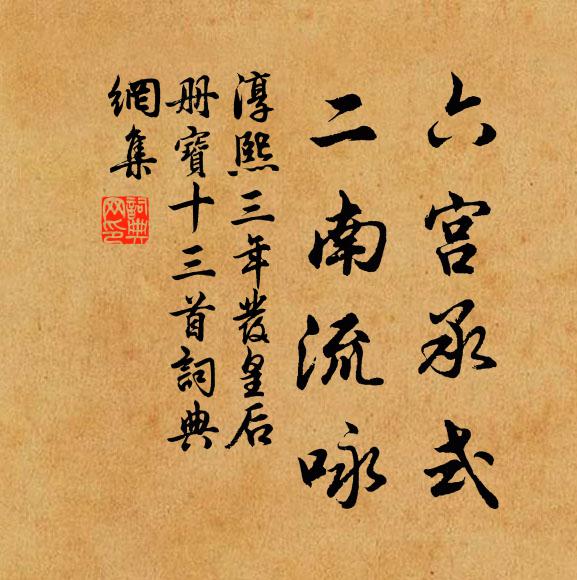 六宫承式
二南流咏
淳熙三年發皇后
册寶十三首詞典
網集
詞典
网印